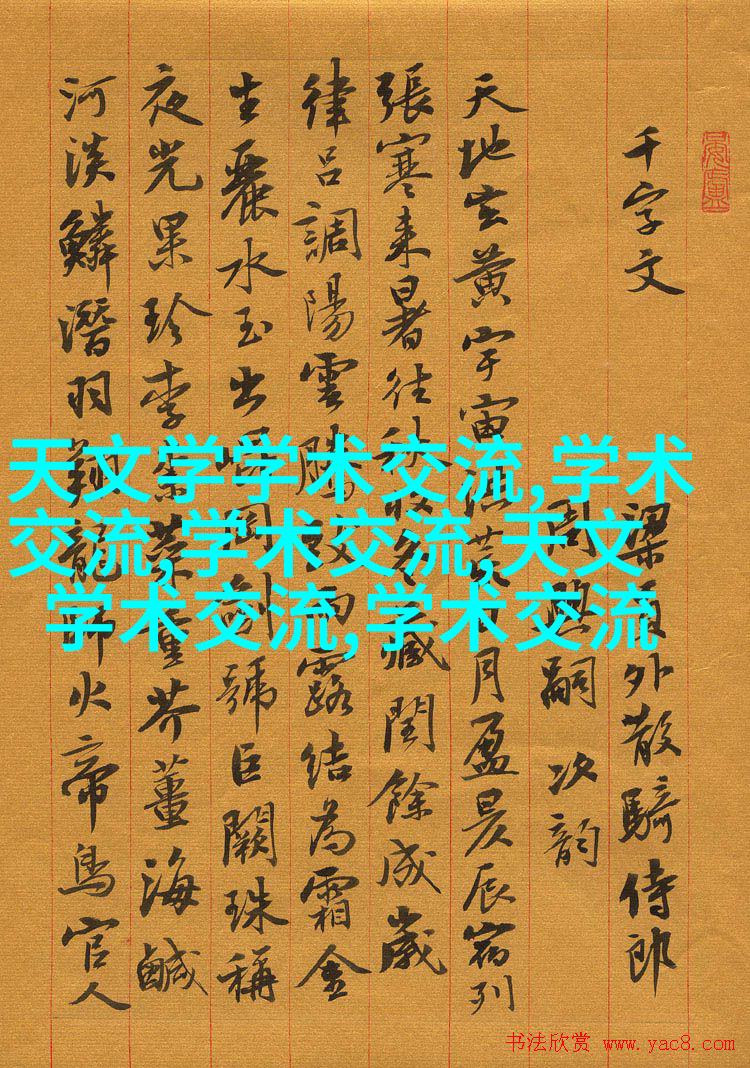 千字文
梁員外散騎侍郎
周興嗣次韵
天地玄黄宇宙洪荒日月盈昃辰宿列
張寒来暑往秋收冬藏閏餘成歲
律吕調陽雲騰致雨露結為霜金
生麗水玉出崐岡劍號巨闕珠稱
夜光果珍李柰菜重芥薑海鹹
河淡鱗潛羽翔龍師火帝鳥官人
天文学学术交流,学术
交流,学术交流,天文
学术交流,学术交流
书法欣赏 www.yac8.com